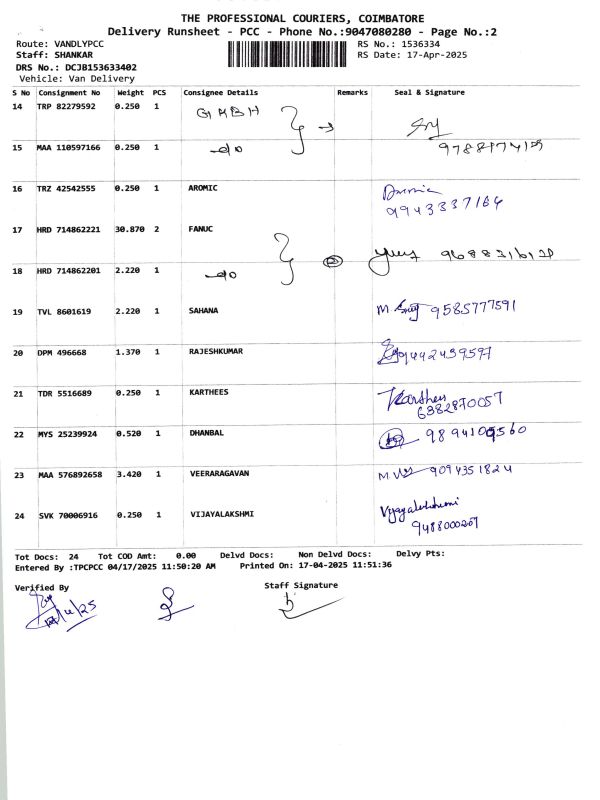 THE PROFESSIONAL COURIERS, COIMBATORE
Delivery Runsheet - PCC - Phone No.:9047080280 - Page No.:2
Route: VANDLYPCC
Staff: SHANKAR
DRS No.: DCJB153633402
Vehicle: Van Delivery
RS No.: 1536334
RS Date: 17-Apr-2025
S No Consignment No Weight PCS Consignee Details Remarks Seal & Signature
14 TRP 82279592 0.250 1
15 MAA 110597166 0.250 1
16 TRZ 42542555 0.250 1 AROMIC
9943337164
17 HRD 714862221 30.870 2 FANUC
18 HRD 714862201 2.220 1
19 TVL 8601619 2.220 1 SAHANA 9585777591
20 DPM 496668 1.370 1 RAJESHKUMAR 9442459597
21 TDR 5516689 0.250 1 KARTHEES Karthees
6382870057
22 MYS 25239924 0.520 1 DHANBAL
23 MAA 576892658 3.420 1 VEERARAGAVAN 9094351824
24 SVK 70006916 0.250 1 VIJAYALAKSHMI Vijayalakshmi
9488000267
Tot Docs: 24 Tot COD Amt: 0.00 Delvd Docs: Non Delvd Docs: Delvy Pts:
Entered By :TPCPCC 04/17/2025 11:50:20 AM Printed On: 17-04-2025 11:51:36
Verified By Staff Signature